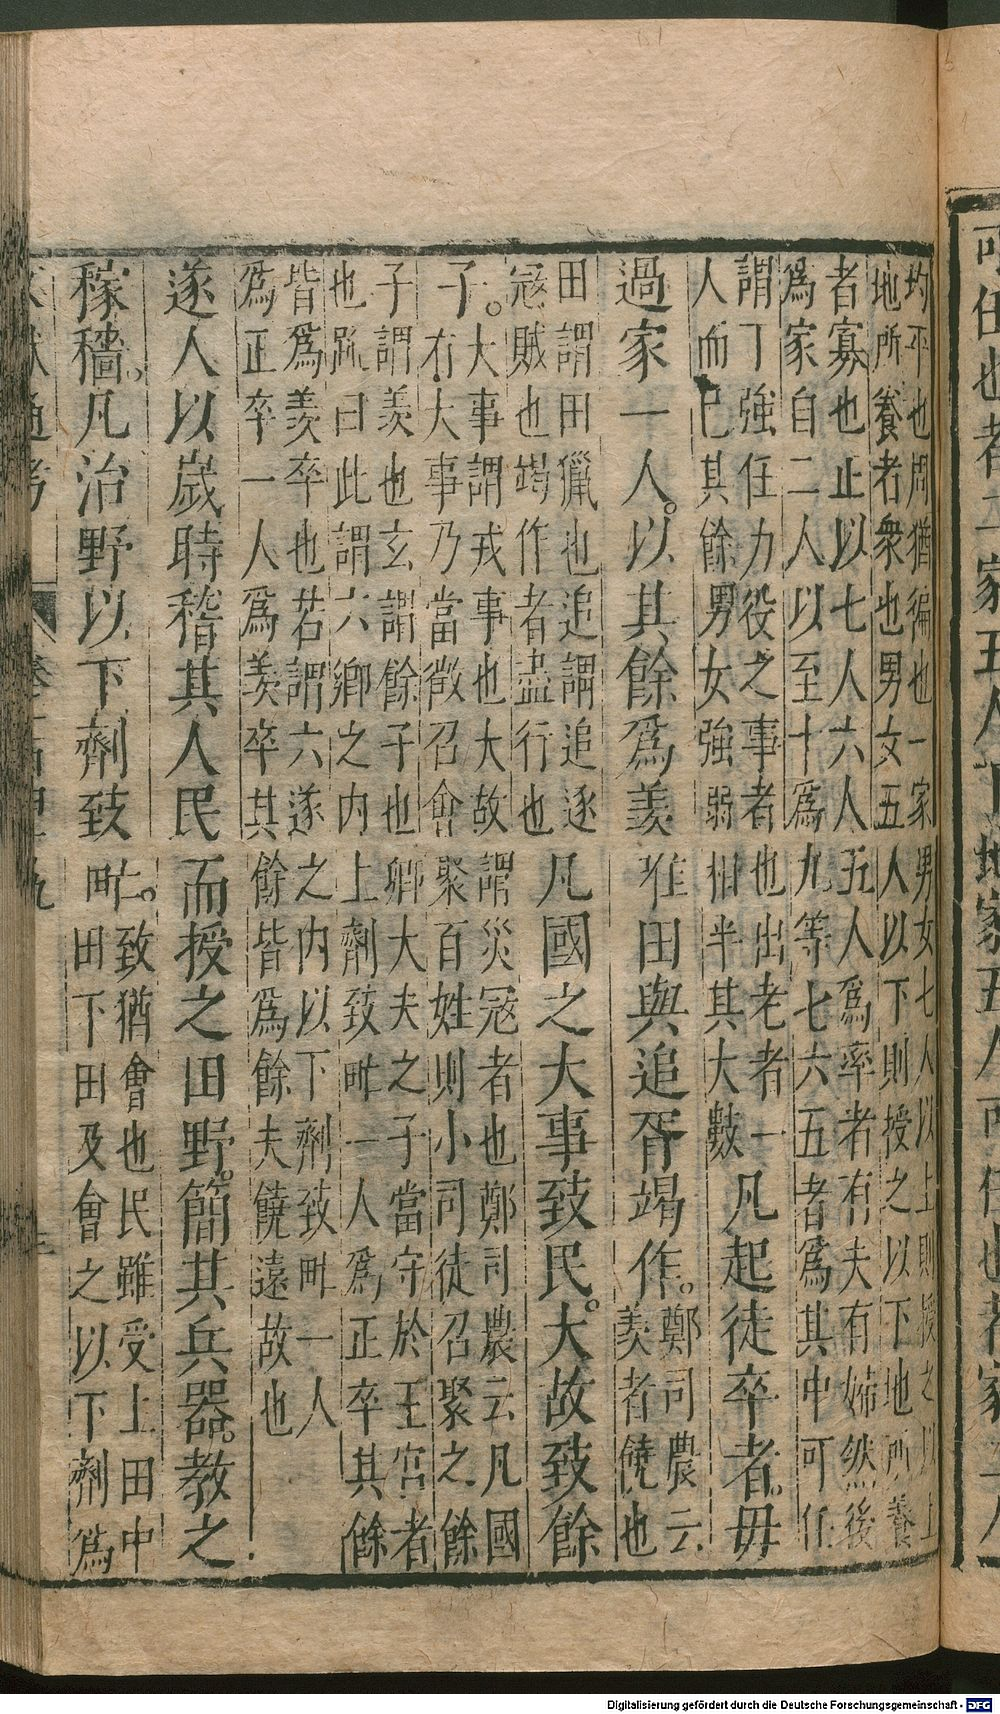 可任也者二家五人下地家五人可任也者家二人
均平也周猶徧也一家男女七人以上則授之以上
地所養者衆也男女五人以下則授之以下地所養
者寡也止以七人六人五人爲率者有夫有婦然後
爲家自二人以至十爲九等七六五者爲其中可任
謂丁強任力役之事者也出老者一
人而已其餘男女強弱相半其大數
凡起徒卒者。毋
過家一人。以其餘爲羨唯田與追胥竭作。
鄭司農云
羨者饒也
田謂田獵也追謂追逐
冦賊也竭作者盡行也
凡國之大事致民。大故致餘
子。
大事謂戎事也大故謂災冦者也鄭司農云凡國
有大事乃當徴召會聚百姓則小司徒召聚之餘
子謂羨也玄謂餘子也卿大夫之子當守於王宮者
也䟽曰此謂六鄉之内上劑致甿一人爲正卒其餘
皆爲羨卒也若謂六遂之内以下劑致甿一人
爲正卒一人爲羨卒其餘皆爲餘夫饒遠故也
遂人以歲時稽其人民而授之田野。簡其兵器。教之
稼穡。凡治野以下劑致甿。
致猶會也民雖受上田中
田下田及會之以下劑爲
Digitalisierung gefördert durch die Deutsche Forschungsgemeinschaft - DFG